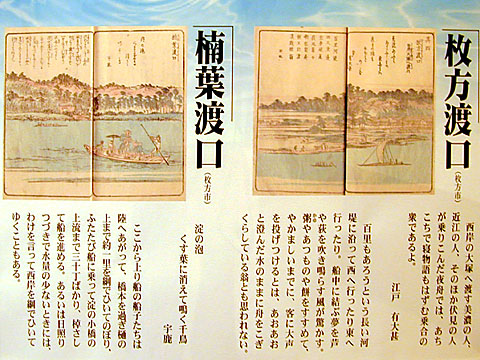 枚方渡口（枚方市）
西岸の大塚へ渡す美濃の人、
近江の人、そのほか伏見の人
が乗りこんだ夜舟では、あち
こちで寝物語もはずむ乗合の
衆であるよ。
江戸　有大甚
百里もあろうという長い河
堤に沿って西へ行ったり東へ
行ったり。船中に結ぶ夢を芦
や荻を吹き鳴らす風が驚かす。
粥やあつものや餅をすすめて、
やかましいまでに、客に大声
を投げつけるとは、あおあお
と澄んだ水のままに舟をこぎ
くらしている翁とも思われない。
楠葉渡口（枚方市）
淀の泡
くす葉に消えて鳴く千鳥
宇鹿
ここから上り船の船子たちは
陸へあがって、橋本を過ぎ樋の
上まで約一里を綱でひいてのぼり、
ふたたび船に乗って淀の小橋の
上流まで三十丁ばかり、棹さし
て船を進める。あるいは日照り
つづきで水量の少ないときには、
わけを言って西岸を綱でひいて
ゆくこともある。